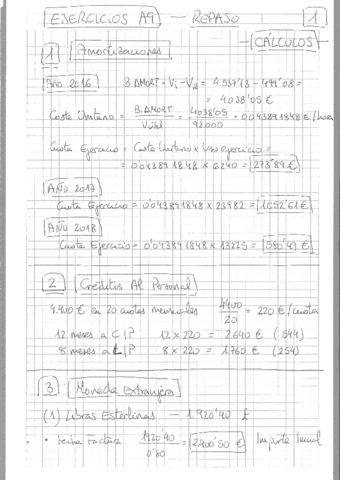 EJERCICIOS A9 — REPASO 1
CÁLCULOS
1 Amortizaciones
Año 2016 B.AMORT = Vi - Va = 4.537'13 - 499'08 =
= 4.038'05 €
Coste Unitario = B.AMORT / Vútil = 4038'05 / 92000 = 0'043891848 € / hora
Cuota Ejercicio = Coste Unitario x Uso ejercicio =
= 0'043891848 x 6240 = 273'89 €
AÑO 2017
Cuota Ejercicio = 0'043891848 x 23982 = 1052'61 €
AÑO 2018
Cuota Ejercicio = 0'043891848 x 13225 = 580'47 €
2 Créditos Al Personal
4.400 € en 20 cuotas mensuales 4400 / 20 = 220 € / cuota
12 meses a C|P 12 x 220 = 2.640 € (544)
8 meses a L|P 8 x 220 = 1.760 € (254)
3 Moneda Extranjera
(1) Libras Esterlinas — 1.920'40 £
· Fecha Factura 1920'40 / 0'80 = 2400'50 € Importe Inicial